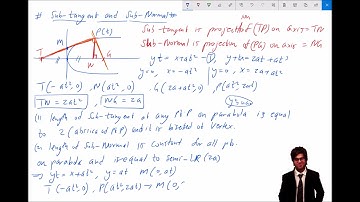 # Sub-tangent and Sub-Normal
Sub-tangent is projection of (TP) on axis = TN
Sub-Normal is projection of (PG) on axis = NG
P(t)
M
T
N
G
yt = x + at² , y + tx = 2at + at³
y = 0, x = -at² y = 0, x = 2a + at²
T(-at², 0) , N(at², 0) , G(2a + at², 0) , P(at², 2at)
TN = 2at² , NG = 2a
(1) length of Sub-tangent at any pt P on parabola is equal
to 2 (abscissa of pt P) and it is bisected at vertex.
(2) length of Sub-Normal is constant for all pts.
on parabola and is equal to semi-LR (2a)
⇒ yt = x + at², y = at M(0, at)
T(-at², 0), P(at², 2at) → M(0,